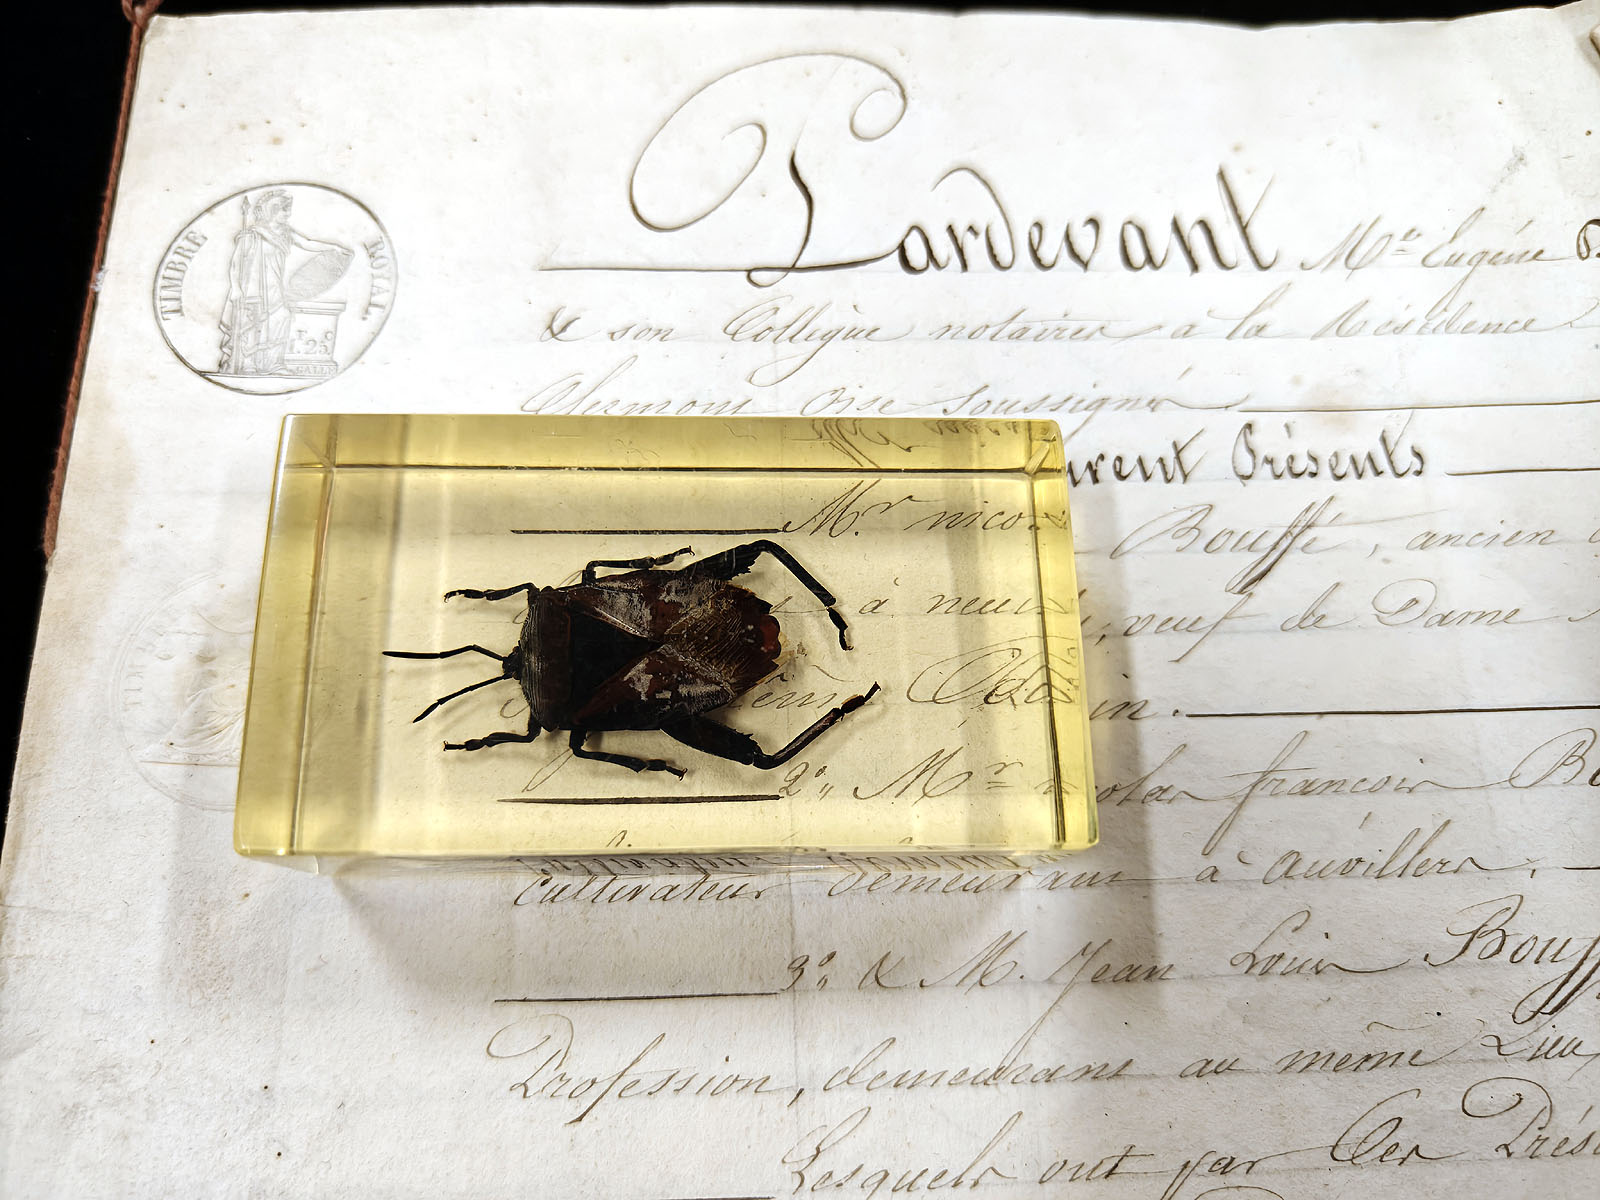 TIMBRE ROYAL
F. 25c
GALLE
Pardevant Me Eugène
& son Collègue notaires à la Résidence
Clermont Oise Soussignés
urent Présents
Mr nico
Bouffé, ancien
à neui ; veuf de Dame
in.
2°,, Mr olas françois
Cultivateur demeurant à auvillers,
3°,, & M. Jean Louis Bouff
Profession, demeurant au même Lieu
Lesquels ont par Ces Prés